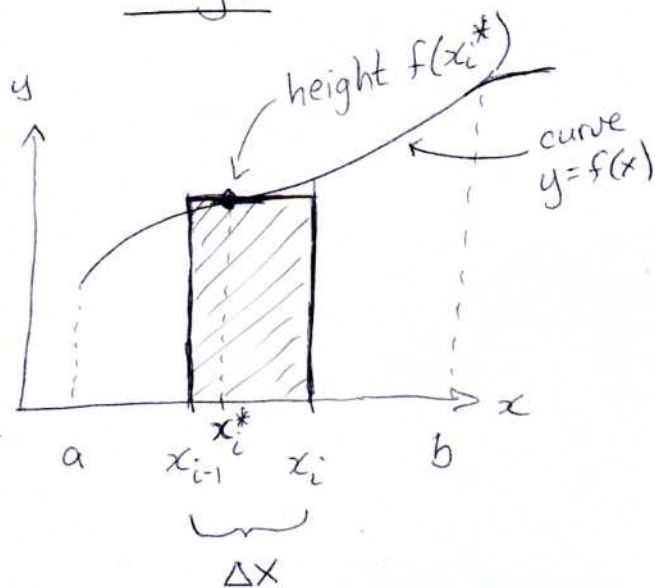 height f(x_i^*)
y
curve
y=f(x)
x
a
x_{i-1}
x_i^*
x_i
b
Δx